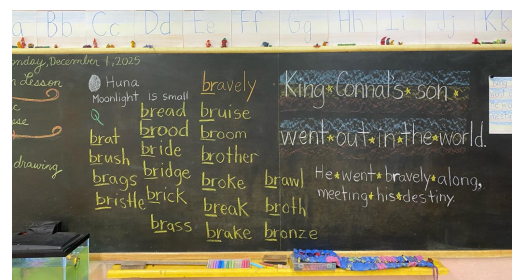 Aa Bb Cc Dd Ee Ff Gg Hh Ii Jj Kk
Monday, December 1, 2025
Lesson
drawing
Huna
Moonlight is small
brat
brush
brags
bristle
bread
brood
bride
bridge
brick
brass
bravely
bruise
broom
brother
broke
break
brake
brawl
broth
bronze
King★Connal's★son★
went★out★in★the★world.
He★went★bravely★along,
meeting★his★destiny.